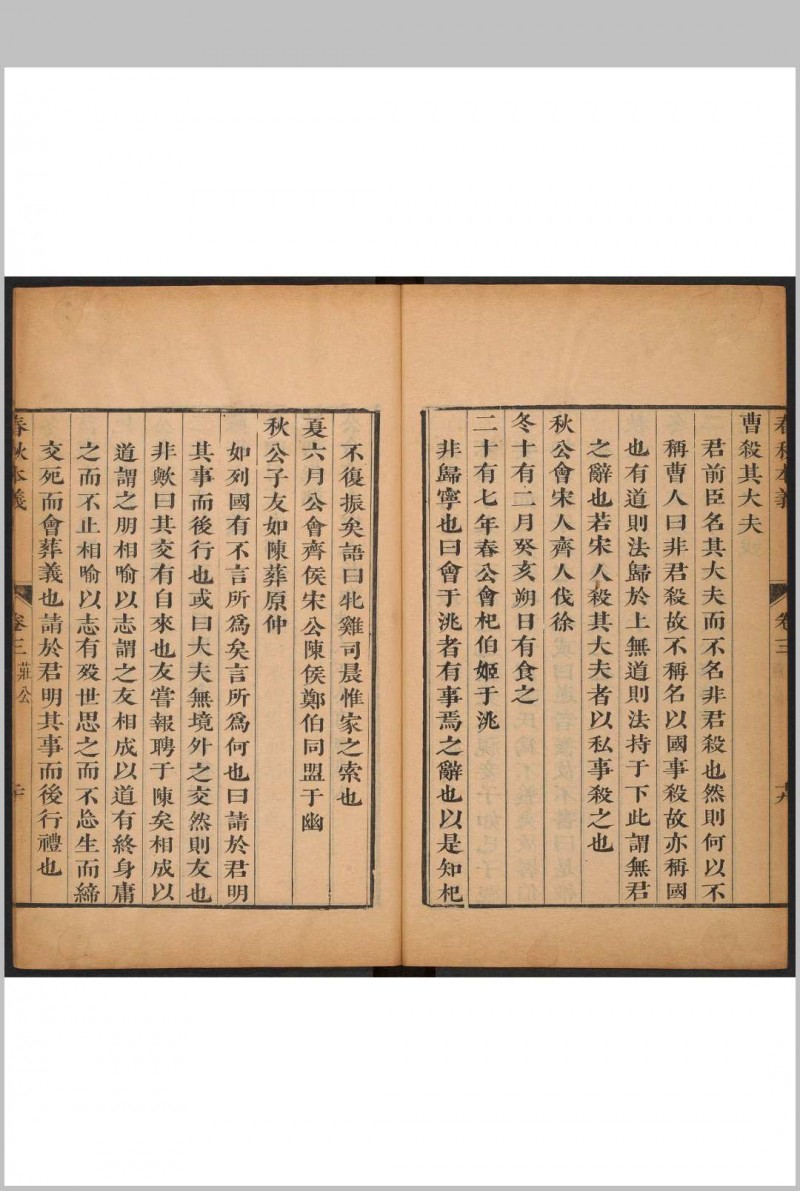 曹殺其大夫
君前臣名其大夫而不名非君殺也然則何以不
稱曹人曰非君殺故不稱名以國事殺故亦稱國
也有道則法歸於上無道則法持于下此謂無君
之辭也若宋人殺其大夫者以私事殺之也
秋公會宋人齊人伐徐
冬十有二月癸亥朔日有食之
二十有七年春公會杞伯姬于洮
非歸寧也曰會于洮者有事焉之辭也以是知杞
不復振矣語曰牝雞司晨惟家之索也
夏六月公會齊侯宋公陳侯鄭伯同盟于幽
秋公子友如陳葬原仲
如列國有不言所爲矣言所爲何也曰請於君明
其事而後行也或曰大夫無境外之交然則友也
非歟曰其交有自來也友嘗報聘于陳矣相成以
道謂之朋相喻以志謂之友相成以道有終身庸
之而不止相喻以志有歿世思之而不怂生而締
交死而會葬義也請於君明其事而後行禮也
春秋本義 卷三 莊公